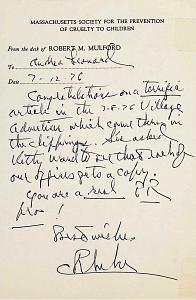 MASSACHUSETTS SOCIETY FOR THE PREVENTION
OF CRUELTY TO CHILDREN
From the desk of ROBERT M. MULFORD
To Andrea Leonard
Date 7-12-76
Congratulations on a terrific
article in the 7-8-76 Village
Advertiser which came thru in
the clippings. I've asked
Kitty Ward to see that each of
our offices gets a copy.
You are a real PR
pro!
Best wishes